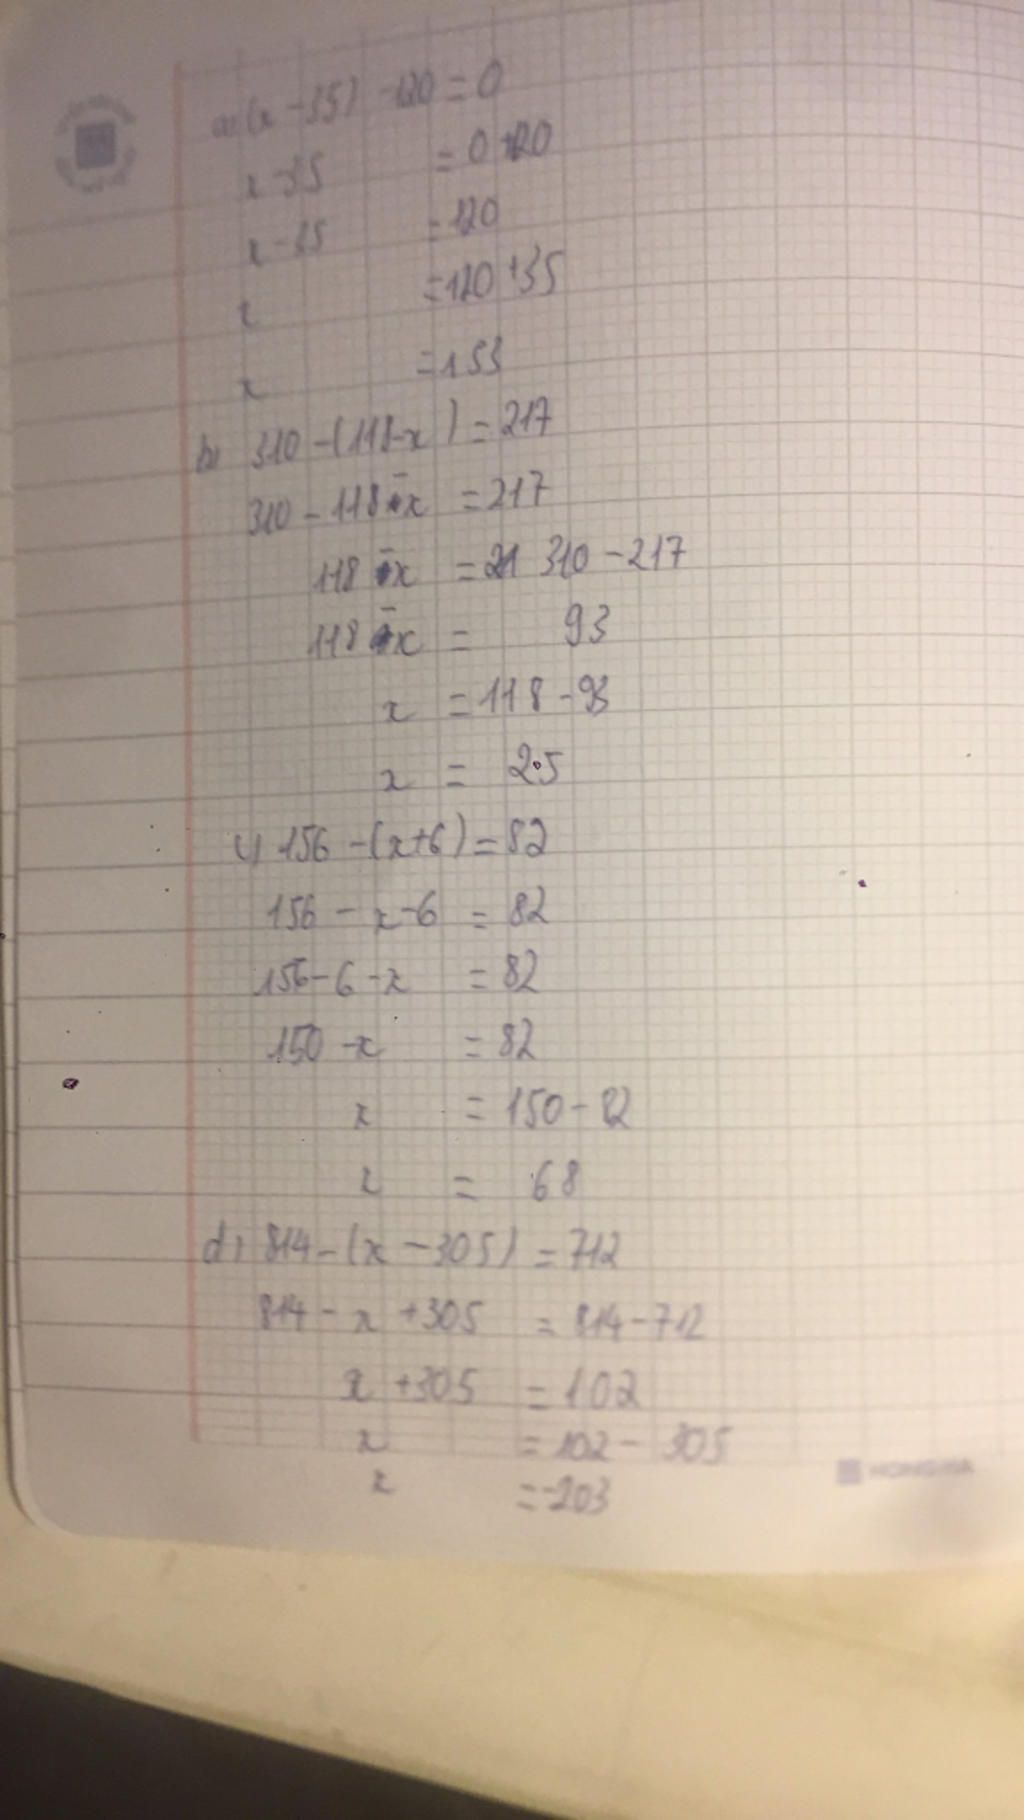 a, (x-35) - 120 = 0
x-35 = 0+120
x-35 = 120
x = 120+35
x = 153
b, 310-(118-x) = 217
310-118-x = 217
118-x = 310-217
118-x = 93
x = 118-93
x = 25
c, 156-(x+6) = 82
156-x-6 = 82
156-6-x = 82
150-x = 82
x = 150-82
x = 68
d, 814-(x-305) = 712
814-x+305 = 814-712
x+305 = 102
x = 102-305
x = -203